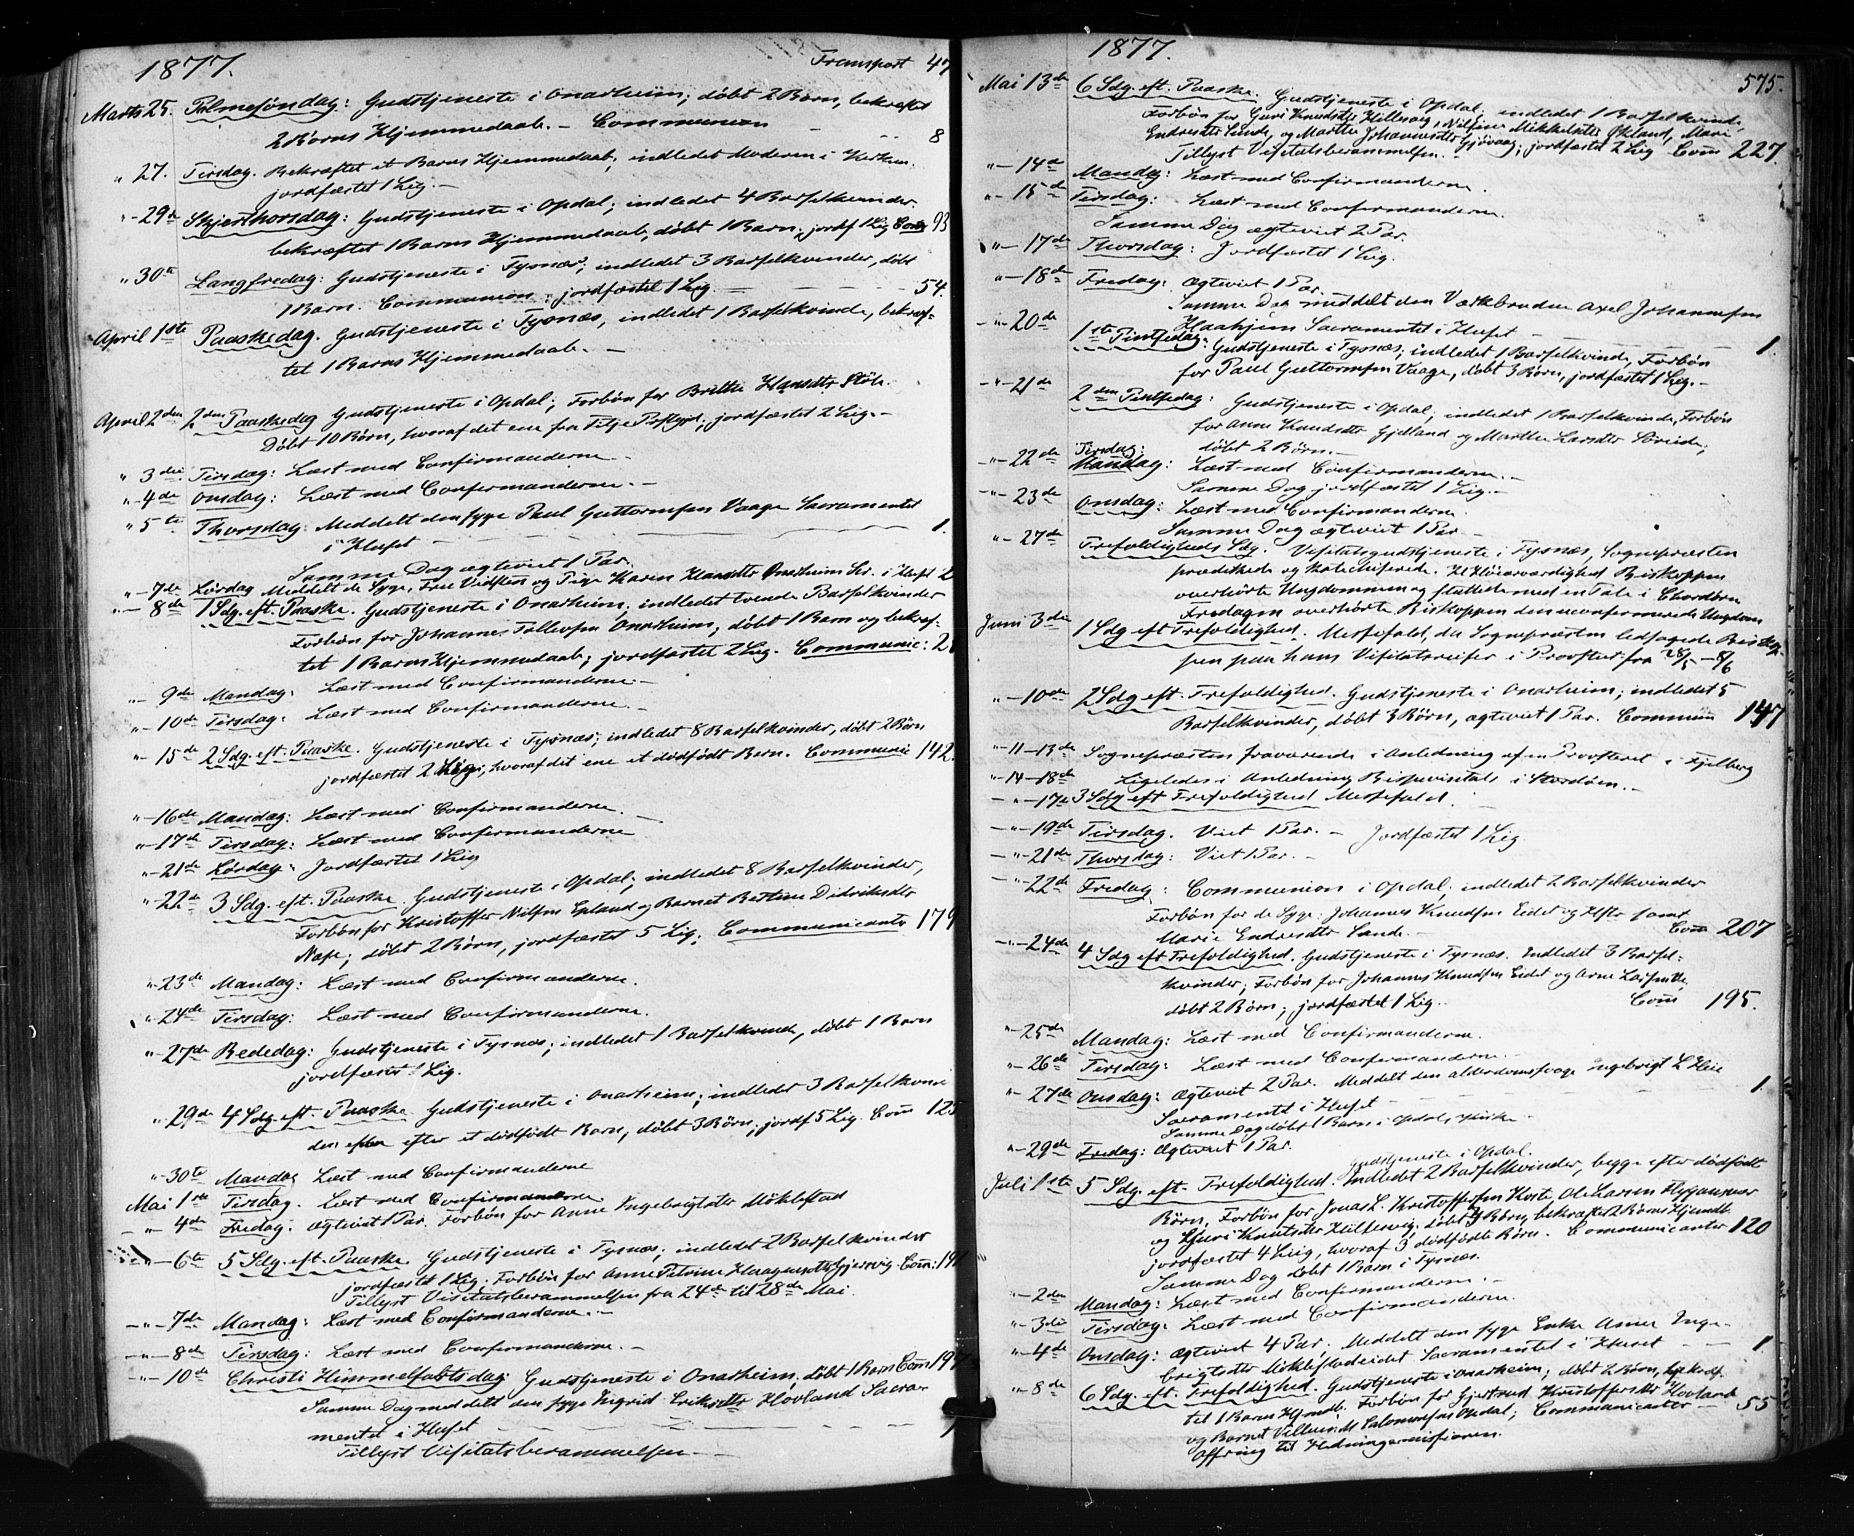 1877. Transport 47
Marts 25. Palmesøndag: Gudstjeneste i Onarheim; døbt 2 Børn, bekræftet
2 Børns Hjemmedaab. — Communion 8
" 27. Tirsdag. Bekræftet et Barns Hjemmedaab, indledet Moderen i Kirken.
jordfæstet 1 Lig. —
"- 29de Skjærthorsdag: Gudstjeneste i Opdal; indledet 4 Barselkvinder
bekræftet 1 Barns Hjemmedaab, døbt 1 Barn, jordf 1 Lig Com 93
" 30te Langfredag: Gudstjeneste i Tysnæs; indledet 3 Barselkvinder, døbt
1 Barn. Communion; jordfæstet 1 Lig. — 54.
April 1ste Paaskedag. Gudstjeneste i Tysnæs, indledet 1 Barselkvinde, bekræf-
tet 1 Barns Hjemmedaab. —
April 2den 2den Paaskedag Gudstjeneste i Opdal; Forbøn for Brithe Hansdtr
Døbt 10 Børn, hvoraf det ene fra Fitje Præstegjd; jordfæstet 2 Lig. —
" 3die Tirsdag: Læst med Confirmanderne —
"- 4de Onsdag: Læst med Confirmanderne. —
" 5te Thorsdag: Meddelt den syge Paul Guttormsen Vaage Sacramentet
i Huset — 1.
Samme Dag ægteviet 1 Par.
"- 7de Lørdag Meddelt de Syge, Frue og Pige Karen Hansdtr Onarheim Scr. i Huset 2
"- 8de 1 Sdg. eft. Paaske. Gudstjeneste i Onarheim; indledet tvende Barselkvinder
Forbøn for Johannes Tollevsen Onarheim, døbt 1 Barn og bekræf-
tet 1 Barns Hjemmedaab; jordfæstet 2 Lig. Communic:
"- 9de Mandag: Læst med Confirmanderne —
"- 10de Tirsdag: Læst med Confirmanderne. —
"- 15de 2 Sdg. eft. Paaske. Gudstjeneste i Tysnæs; indledet 8 Barselkvinder, døbt 2 Børn
jordfæstet 2 Lig, hvoraf det ene et dødfødt Barn. Communic 142.
"- 16de Mandag: Læst med Confirmanderne —
"- 17de Tirsdag: Læst med Confirmanderne
"- 21de Lørdag: Jordfæstet 1 Lig
"- 22de 3 Sdg. eft. Paaske. Gudstjeneste i Opdal; indledet 8 Barselkvinder,
Forbøn for Kristoffer Nilsen og Barnet Bertine Didriksdtr
døbt 2 Børn, jordfæstet 5 Lig; Communicanter 179
"- 23de Mandag: Læst med Confirmanderne.
"- 24de Tirsdag: Læst med Confirmanderne.
"- 27de Bededag: Gudstjeneste i Tysnæs; indledet 1 Barselkvinde, døbt 1 Barn
jordfæstet 1 Lig.
"- 29de 4 Sdg. eft. Paaske Gudstjeneste i Onarheim; indledet 3 Barselkvin
efter et dødfødt Barn, døbt 3 Børn, jordf 5 Lig. Com 125
"- 30te Mandag Læst med Confirmanderne
Mai 1ste Tirsdag. Læst med Confirmanderne
"- 4de Fredag: Ægteviet 1 Par. Forbøn for Anne Ingebrigtdtr Møklestad
"- 6te 5 Sdg. eft. Paaske Gudstjeneste i Tysnæs; indledet 2 Barselkvinder
jordfæstet 1 Lig. Forbøn for Anne Petrine Haagensdtr Gjersvig. Com: 191
Tillyst Visitatsberammelsen fra 24de til 28de Mai.
— " — 7de Mandag: Læst med Confirmanderne. —
— " — 8de Tirsdag: Læst med Confirmanderne. —
— " — 10de Christi Himmelfartsdag Gudstjeneste i Onarheim, døbt 1 Barn Com 197
Samme Dag meddelt den syge Ingrid Eriksdtr Hovland Sacra-
mentet i Huset
Tillyst Visitatsberammelsen —
1877. 575.
Mai 13de 6 Sdg. eft. Paaske. Gudstjeneste i Opdal; indledet 1 Barselkvinde,
Forbøn for Guri Knudsdtr Hillesvig, Nilsine Mikkelsdtr Mari
Endresdtr Sunde, og Marthe Johannesdtr Gjøvaag; jordfæstet 2 Lig Com 227
Tillyst Visitatsberammelsen. —
"- 14de Mandag: Læst med Confirmanderne.
"- 15de Tirsdag: Læst med Confirmanderne.
Samme Dag ægteviet 2 Par.
"- 17de Thorsdag: Jordfæstet 1 Lig.
"- 18de Fredag: Ægteviet 1 Par.
Samme Dag meddelt den Værkbrudne Axel Johannesen
Haahjem Sacramentet i Huset — 1.
— "- 20de 1ste Pintsedag: Gudstjeneste i Tysnæs; indledet 1 Barselkvinde, Forbøn
for Paul Guttormsen Vaage, døbt 3 Børn, jordfæstet 1 Lig. —
"- 21de 2den Pintsedag: Gudstjeneste i Opdal; indledet 1 Barselkvinde, Forbøn
for Anne Knudsdtr Gjelland og Marthe Larsdtr
døbt 2 Børn. —
"- 22de Tirsdag: Mandag: Læst med Confirmanderne. —
Samme Dag jordfæstet 1 Lig. —
— " 23de Onsdag: Læst med Confirmanderne.
Samme Dag ægteviet 1 Par.
"- 27de Trefoldigheds Sdg. Visitatsgudstjeneste i Tysnæs, Sognepræsten
prædikede og katechiserede. H. Høiærværdighed Biskoppen
overhørte Ungdommen og sluttede med en Tale i Chordøren
Fredagen overhørte Biskoppen den uconfirmerede Ungdom
Juni 3die 1 Sdg eft Trefoldighed. Messefald, da Sognepræsten ledsagede Biskop-
pen paa hans Visitatsreiser i Provstiet fra 28/5 — 8/6
"- 10de 2 Sdg eft. Trefoldighed. Gudstjeneste i Onarheim; indledet 5
Barselkvinder, døbt 3 Børn, ægteviet 1 Par. Commun 147
"- 11-13de Sognepræsten fraværende i Anledning af en Provsteret i Fjelberg
"- 14-18de Ligeledes i Anledning Bispevisitats i Stordøen. —
— " — 17de 3 Sdg eft Trefoldighed Messefald.
— " — 19de Tirsdag. Viet 1 Par. — Jordfæstet 1 Lig
— " — 21de Thorsdag: Viet 1 Par. —
— " — 22de Fredag: Communion i Opdal. indledet 2 Barselkvinder
Forbøn for de Syge Johannes Knudsen Eidet og Hstr samt
Marie Endresdtr Sunde. — Com 207
"- 24de 4 Sdg eft Trefoldighed. Gudstjeneste i Tysnæs. Indledet 3 Barsel-
kvinder; Forbøn for Johannes Knudsen Eidet og Arne
døbt 2 Børn; jordfæstet 1 Lig. Com 195.
"- 25de Mandag: Læst med Confirmanderne.
"- 26de Tirsdag: Læst med Confirmanderne. —
"- 27de Onsdag: Ægteviet 2 Par. Meddelt den alderdomssvage Ingebrigt L
Sacramentet i Huset — 1.
Samme Dag døbt 1 Barn i Opdals Kirke.
"- 29de Fredag: Ægteviet 1 Par.
Gudstjeneste i Opdal.
Juli 1ste 5 Sdg. eft. Trefoldighed. Indledet 2 Barselkvinder, begge efter dødfødt
Børn. Forbøn for Jonas L. Kristoffersen Ole Larsen Flygansvær
og Guri Knutsdtr Hillesvig; døbt 3 Børn, bekræftet 2 Børns Hjemdb
jordfæstet 4 Liig, hvoraf 3 dødfødte Børn. Communicanter 120
Samme Dag døbt 1 Barn i Tysnæs.
"- 2den Mandag: Læst med Confirmanderne. —
"- 3die Tirsdag: Læst med Confirmanderne.
"- 4de Onsdag: Ægteviet 4 Par; Meddelt den syge Enke Anne Inge-
brigtdtr Møklestadeidet Sacramentet i Huset — 1
"- 8de 6 Sdg. eft. Trefoldighed. Gudstjeneste i Onarheim; døbt 2 Børn, bekræf-
tet 1 Barns Hjmdb. Forbøn for Gjertrud Kristoffersdtr Hovland
og Barnet Salomonsen Opdal; Communicanter — 55
Offring til Hedningemissionen.